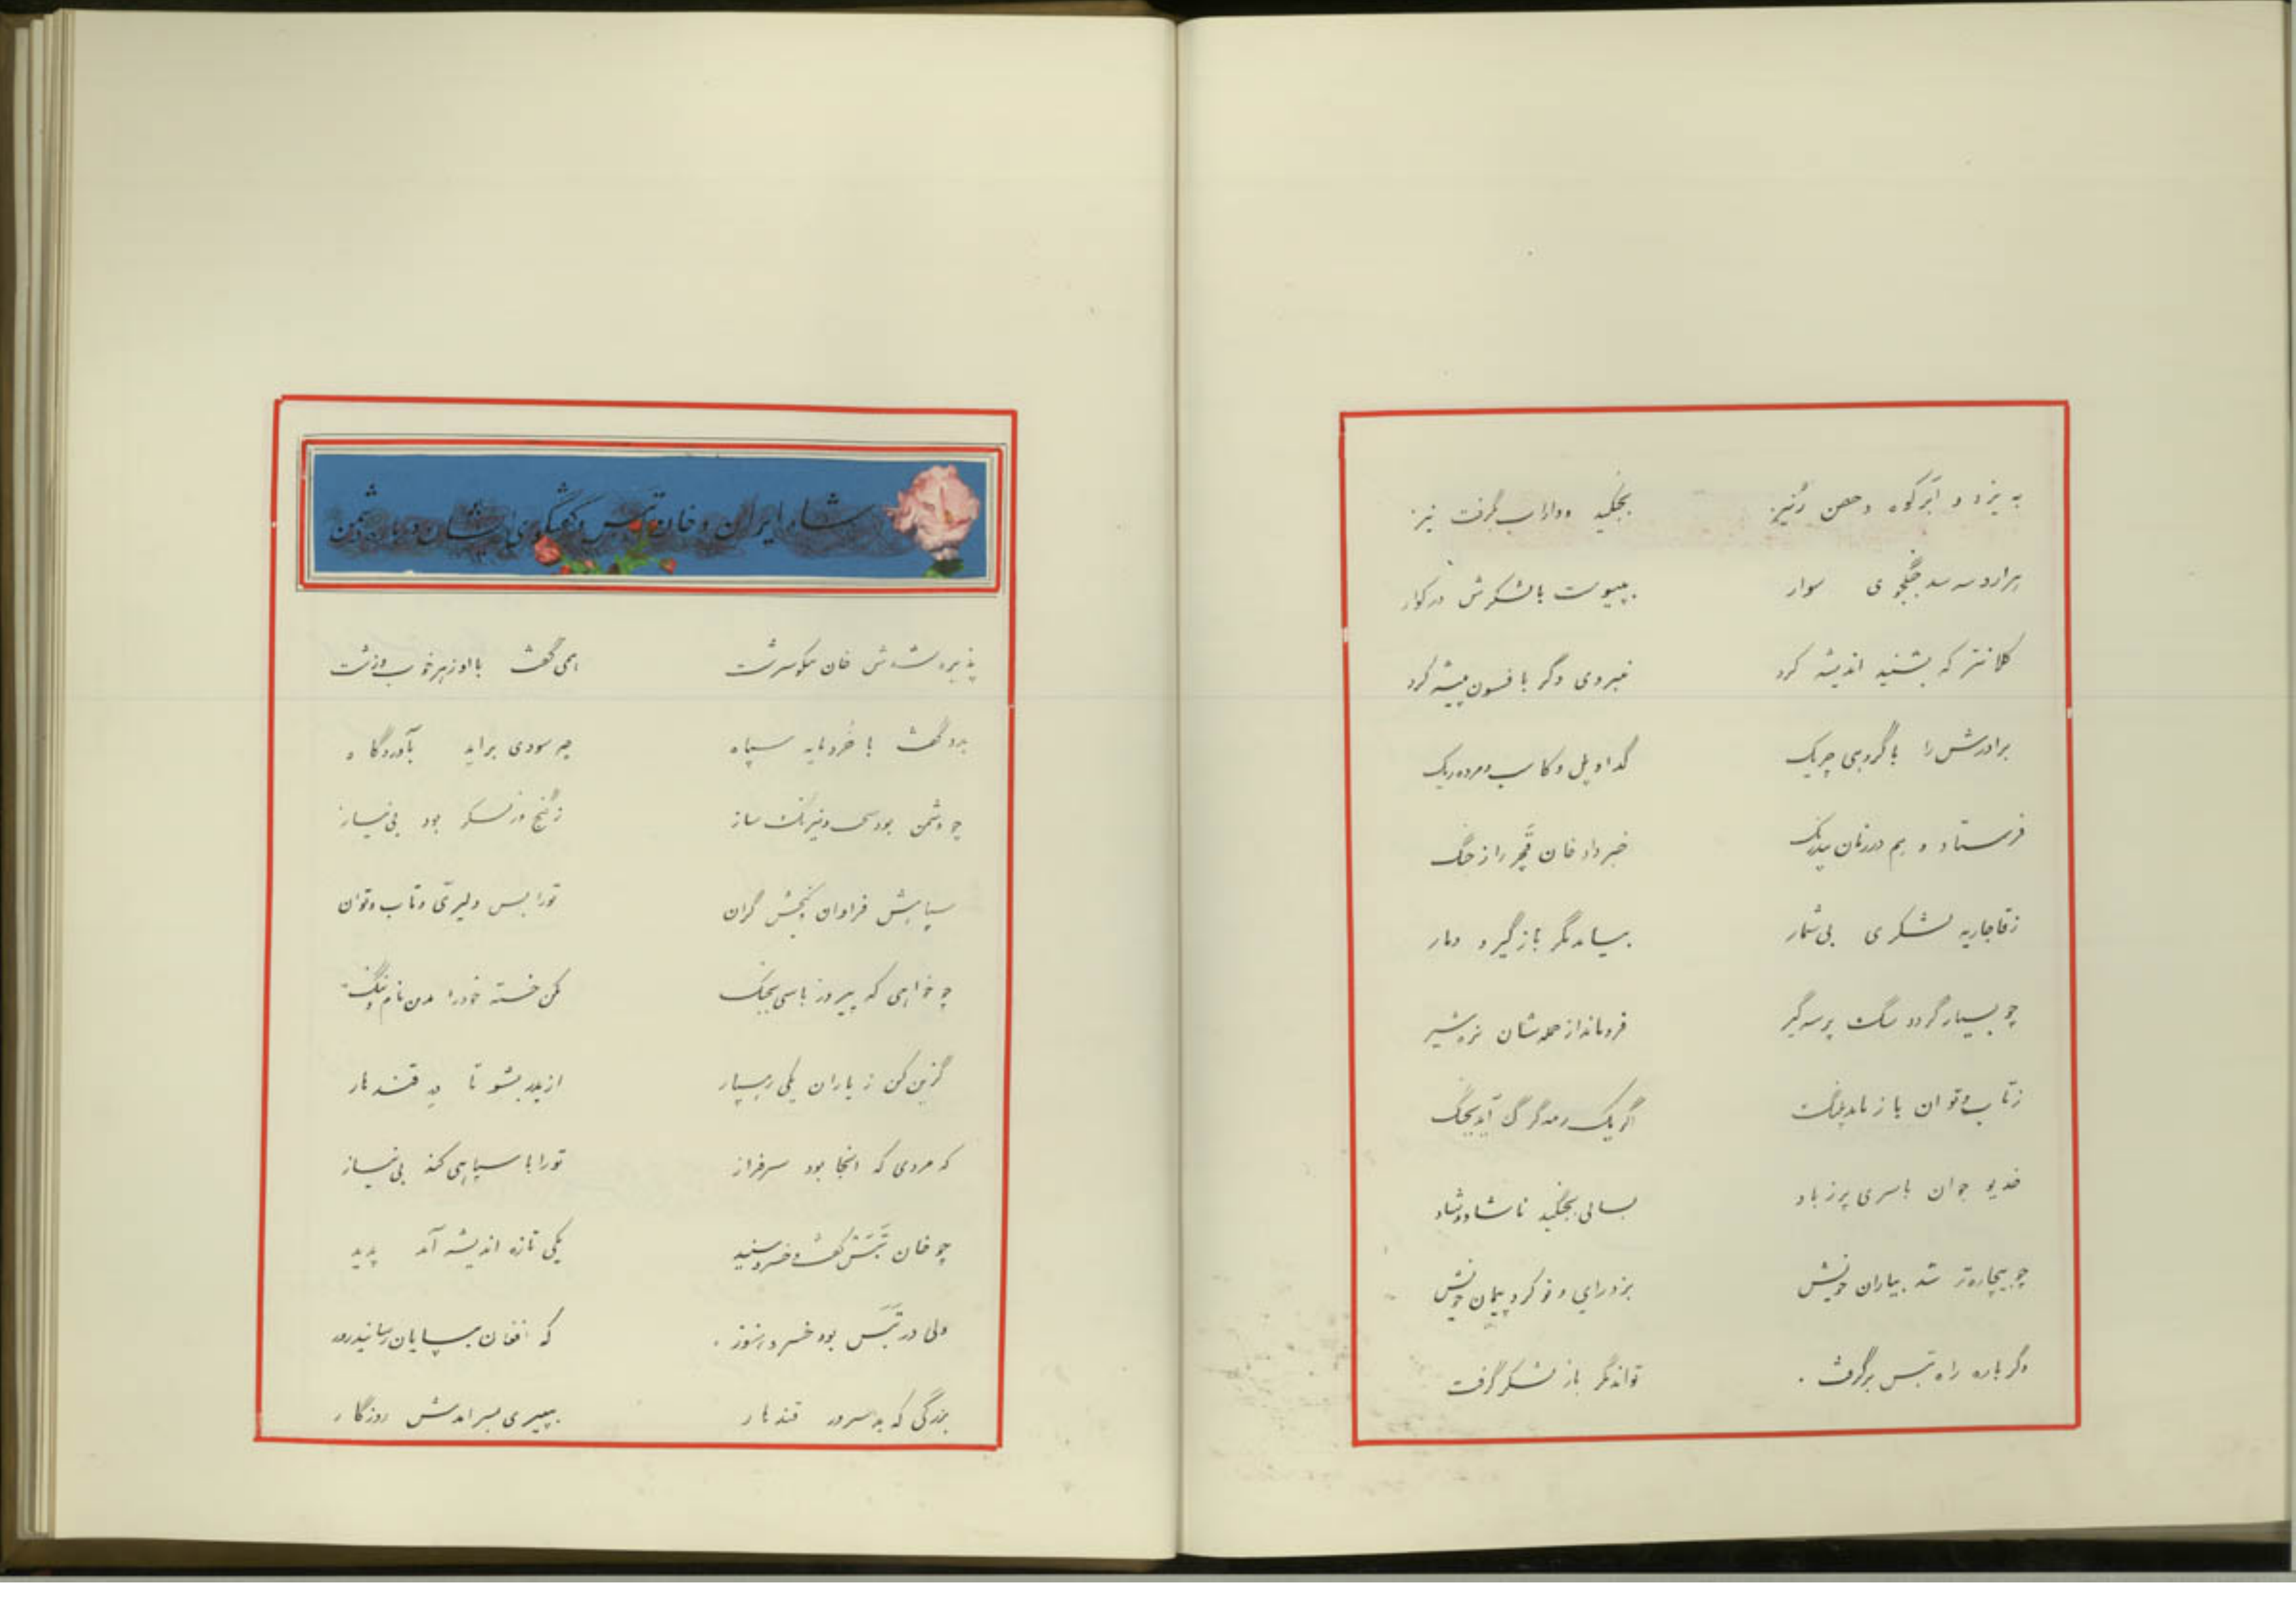 به یزد و ابرکوه و حصن رُنیز بجنگید و داراب بگرفت نیز
هزار و سه سد جنگجوی سوار بپیوست با لشکرش در کوار
کلانتر که بشنید اندیشه کرد نبردی دگر با فسون پیشه کرد
برادرش را با گروهی چریک گدا و یل و کاسب و مرده ریک
فرستاد و هم در زمان بیدرنگ خبر داد خان قجر را ز جنگ
ز قاجاریه لشکری بی شمار بیامد مگر باز گیرد دمار
چو بسیار گردد سگ پرسه گیر فروماند از حمله شان نره شیر
ز تاب و توان باز ماند پلنگ اگر یک رمه گرگ آید بجنگ
خدیو جوان با سری پر ز باد بسالی بجنگید ناشاد و شاد
چو بیچاره تر شد بیاران خویش بزد رای و نو کرد پیمان خویش
دگر باره راه تبس برگرفت تواند مگر باز لشکر گرفت
شاه ایران و خان تبس و گفتگوی ایشان درباره دشمن
پذیره شدش خان نیکو سرشت همی گفت با او ز هر خوب و زشت
بدو گفت با خرد مایه سپاه چه سودی براید بآوردگاه
چو دشمن بود سخت و نیرنگ ساز ز گنج و ز لشکر بود بی نیاز
سپاهش فراوان گنجش گران تو را بس دلیری و تاب و توان
چو خواهی که پیروز باشی بجنگ مکن خسته خود را بدین نام و ننگ
گزین کن ز یاران یکی رهسپار از ایدر بشو تا در قندهار
که مردی که انجا بود سرفراز تو را با سپاهی کند بی نیاز
چو خان تَبَس گفت و خسرو شنید یکی تازه اندیشه آمد پدید
ولی در تَبَس بود خسرو هنوز که افغان بپایان رسانید روز
بزرگی که بد سرور قندهار بپیری سر امدش روزگار